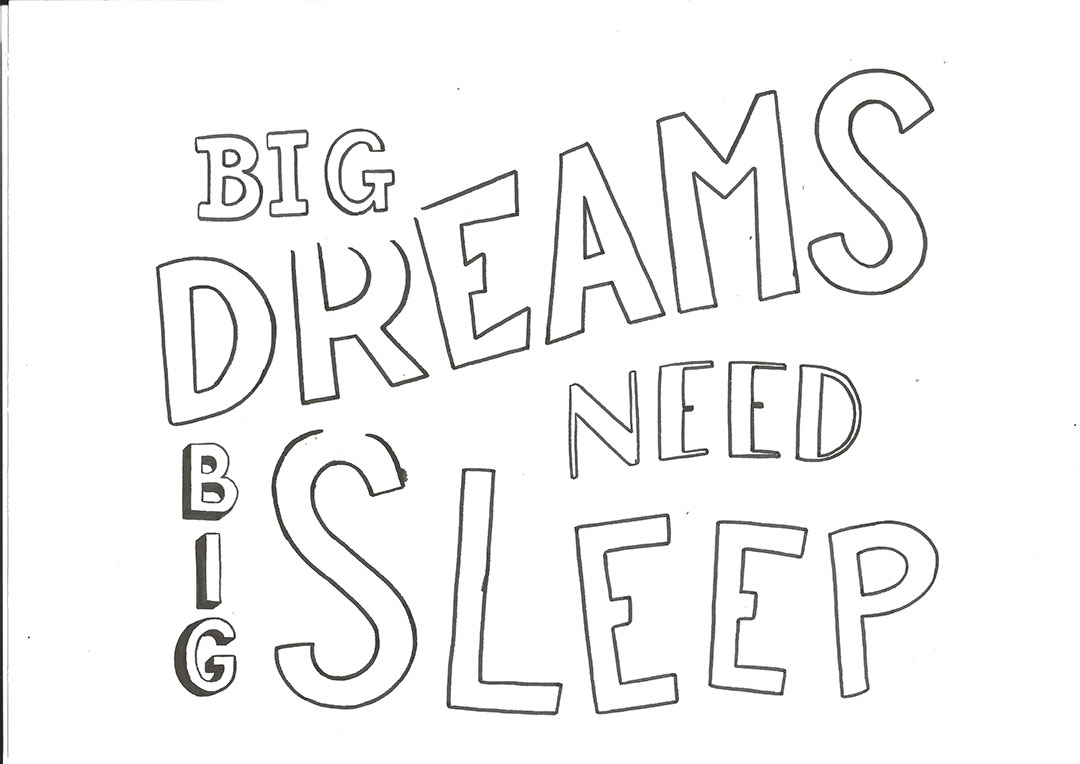 BIG
DREAMS
NEED
BIG
SLEEP